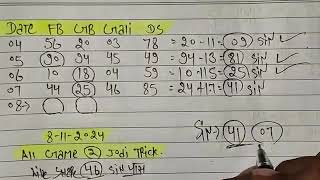 Date FB GB Gali DS
04 56 20 03 78 = 20-11 = 09 sin ✓
05 90 94 45 49 = 94-13 = 81 sin ✓
06 10 18 04 59 = 10+15 = 25 sin ✓
07 44 25 46 85 = 24+17 = 41 sin
08→
Sin→ 41 07
8-11-2024
All Game 2 Jodi Trick.
46